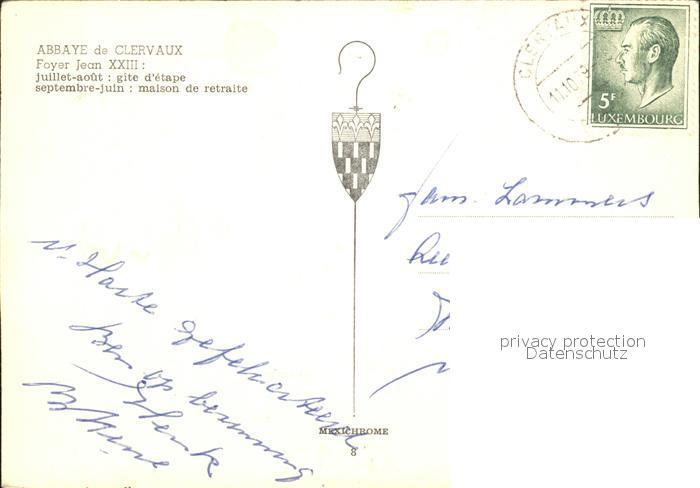 ABBAYE de CLERVAUX
Foyer Jean XXIII :
juillet-août : gite d'étape
septembre-juin : maison de retraite
CLERVAUX
11.10
5F
LUXEMBOURG
fam. Lammers
v. Harte Gefeliciteerd
Ben op
Henk
MEXICHROME
8
privacy protection
Datenschutz